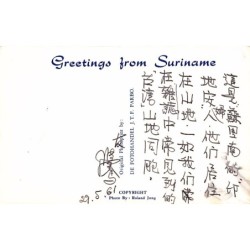 Greetings from Suriname
這是蘇里南的印
地安人他們居住
在山地一如我們
在雜誌中常見到的
台灣山地同胞。
Original Picture by:
DE FOTOHANDEL J.T.F. PARBO.
29.5.61
COPYRIGHT
Photo By : Roland Jong